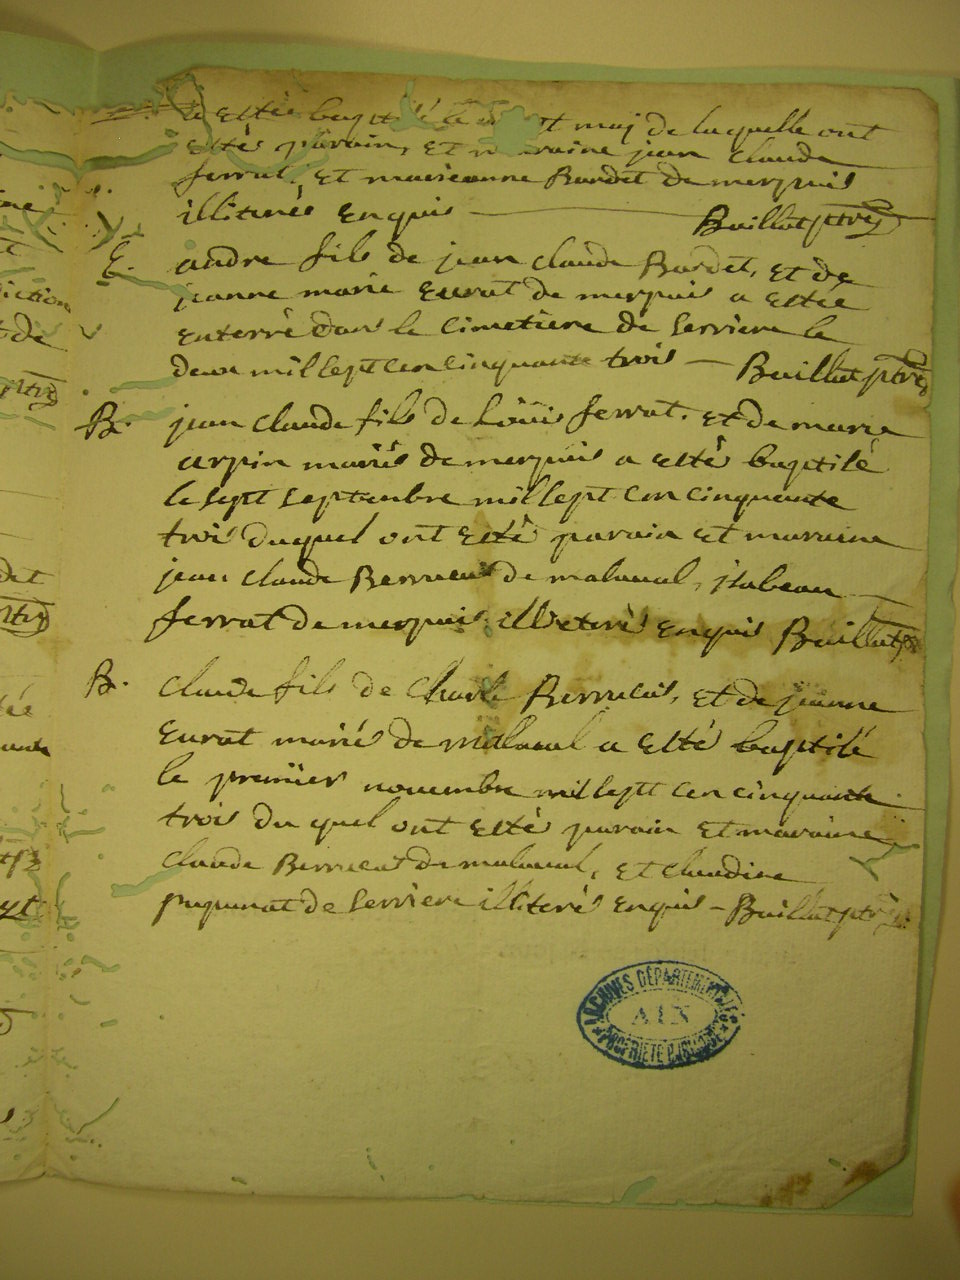 a estée baptisé le maj de laquelle ont
estés parain, et maraine jean claude
ferrat, et marieanne Bordet de merpuis
illiterés enquis Baillat ptre
E. andre fils de jean claude Bordet, et de
jeanne marie Eurat de merpuis a estée
enterré dans le cimetiere de serriere le
deux mil sept cen cinquante trois - Baillat ptre
B. jean claude fils de Loüis ferrat. et de marie
arpin mariés de merpuis a estés baptisé
le sept septembre mil sept cen cinquante
trois duquel ont esté parain et maraine
jean claude de malaval, jsabeau
ferrat de merpuis illiterés enquis Baillat
B. claude fils de Charle et de jeanne
Eurat mariés de malaval a estés baptisé
le premier novembre mil sept cen cinquante
trois du quel ont estés parain et maraine
claude de malaval, et claudine
de serriere illiterés enquis - Baillat ptre
ARCHIVES DÉPARTEMENTALES
AIN
PROPRIÉTÉ PUBLIQUE